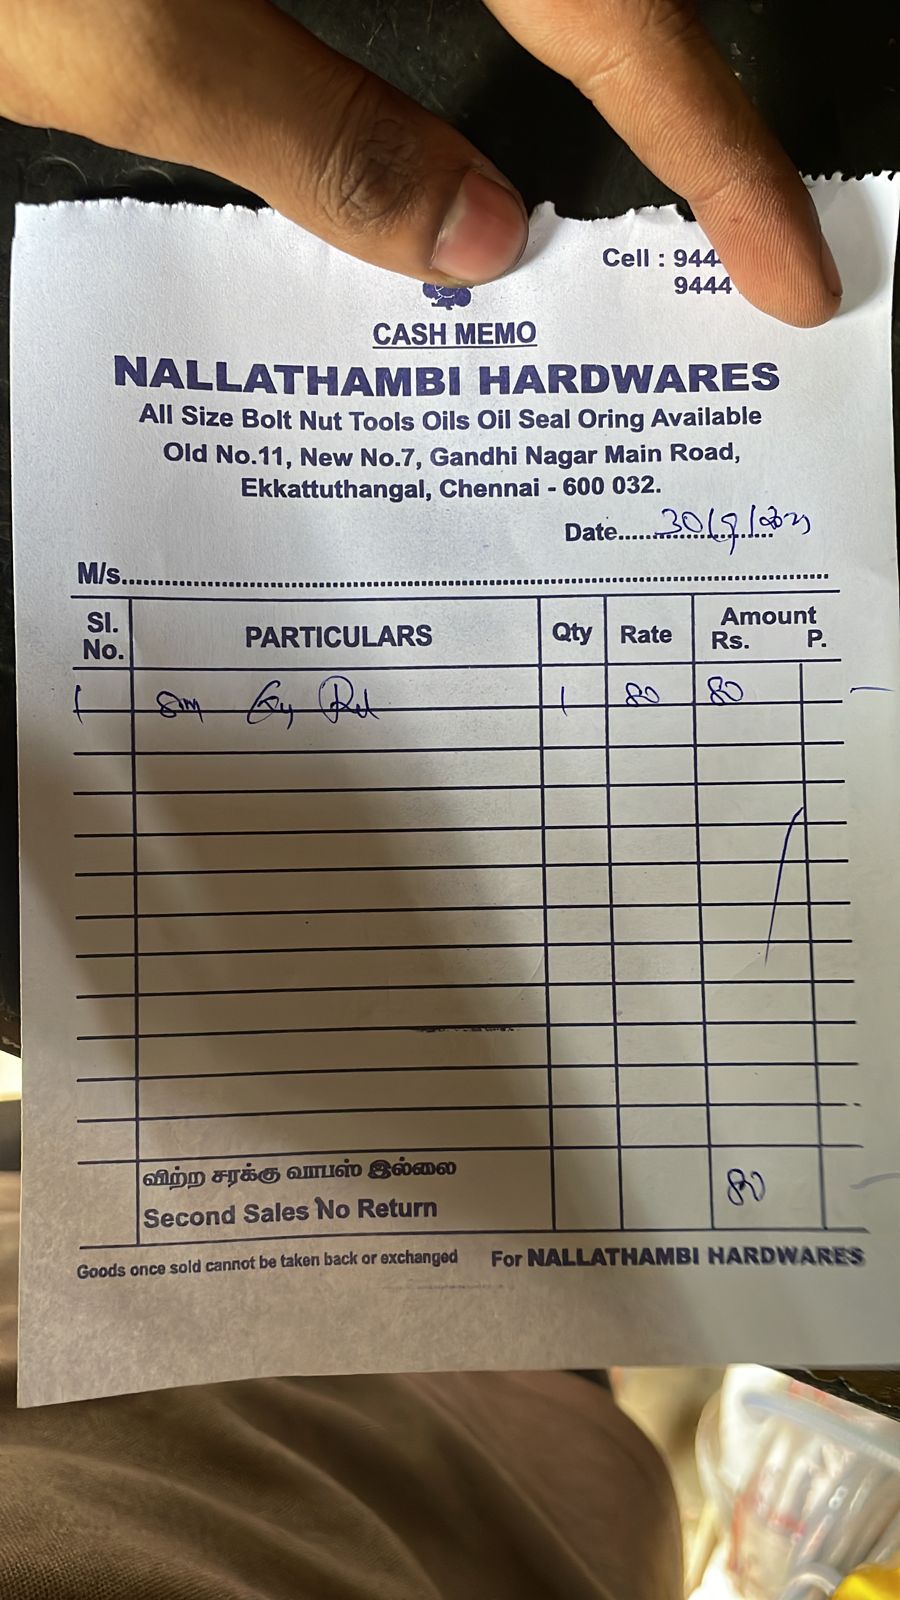 Cell : 944
9444
CASH MEMO
NALLATHAMBI HARDWARES
All Size Bolt Nut Tools Oils Oil Seal Oring Available
Old No.11, New No.7, Gandhi Nagar Main Road,
Ekkattuthangal, Chennai - 600 032.
Date
M/s.
Sl. No. PARTICULARS Qty Rate Amount Rs. P.
1 1 80 80
விற்ற சரக்கு வாபஸ் இல்லை
Second Sales No Return
80
Goods once sold cannot be taken back or exchanged For NALLATHAMBI HARDWARES